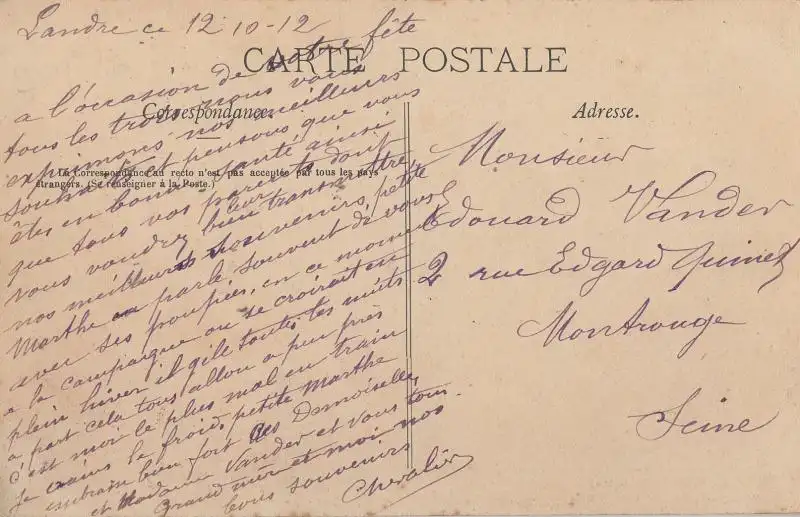 Landre ce 12 10-12
CARTE POSTALE
a l'occasion de votre fête
tous les trois nous vous
Correspondance.
exprimons nos meilleurs
souhaits et pensons que vous
La Correspondance au recto n'est pas acceptée par tous les pays
étrangers. (Se renseigner à la Poste.)
êtes en bonne santé ainsi
que tous vos parents dont
vous voudrez bien leur transmettre,
nos meilleurs souvenirs, petite
Marthe parle souvent de vous
avec ses poupées, en ce moment
a la campagne on se croirait en
plein hiver il gèle toutes les nuits
a part cela tous allon a peu près
c'est moi le plus mal en train
je crains le froid, petite Marthe
embrasse bien fort les Demoiselles
et Madame Vander et vous tous
Grand mèr et moi nos
bons souvenirs
Chevalier
Adresse.
Monsieur
Edouard Vander
2 rue Edgard Quinet
Montrouge
Seine